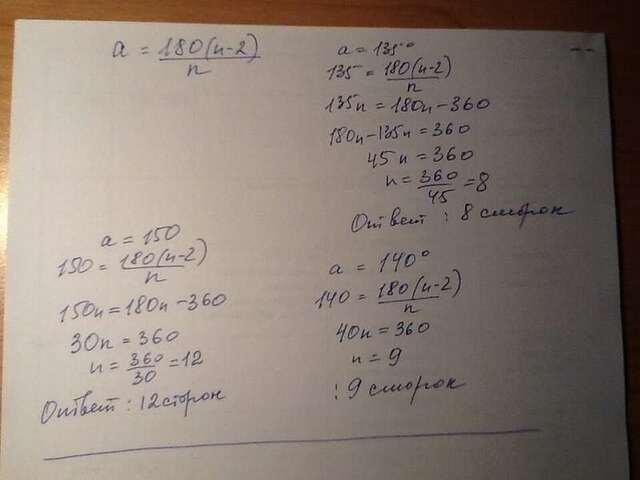 a = 180(n-2)/n
a = 135°
135 = 180(n-2)/n
135n = 180n - 360
180n - 135n = 360
45n = 360
n = 360/45 = 8
Ответ : 8 сторон
a = 150
150 = 180(n-2)/n
150n = 180n - 360
30n = 360
n = 360/30 = 12
Ответ : 12 сторон
a = 140°
140 = 180(n-2)/n
40n = 360
n = 9
: 9 сторон